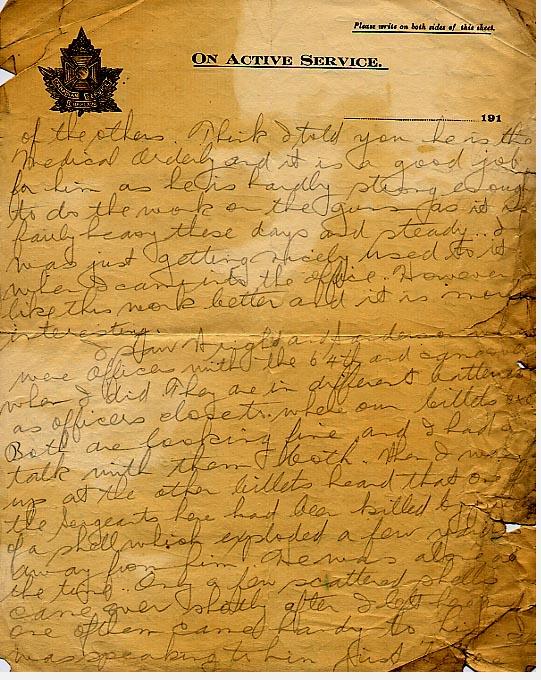 Please write on both sides of this sheet.
ON ACTIVE SERVICE.
191
of the others. Think I told you he is the
Medical Orderly and it is a good job
for him as he is hardly strong enough
to do the work on the guns as it is
fairly heavy these days and steady. I
was just getting nicely used to it
when I came into the office. However I
like this work better and it is more
interesting.
I saw and Anderson who
were officers with the 64th and
when I did. They are in different batteries
as officers close to where our billets are
Both are looking fine and I had a
talk with them both. When I was
up at the other billets heard that one of
the Sergeants here had been killed by
of a shell which exploded a few yards
away from him. He was
the time. Only a few scattered shells
came over shortly after I left here and
one of them came handy to him. I
was speaking to him just before